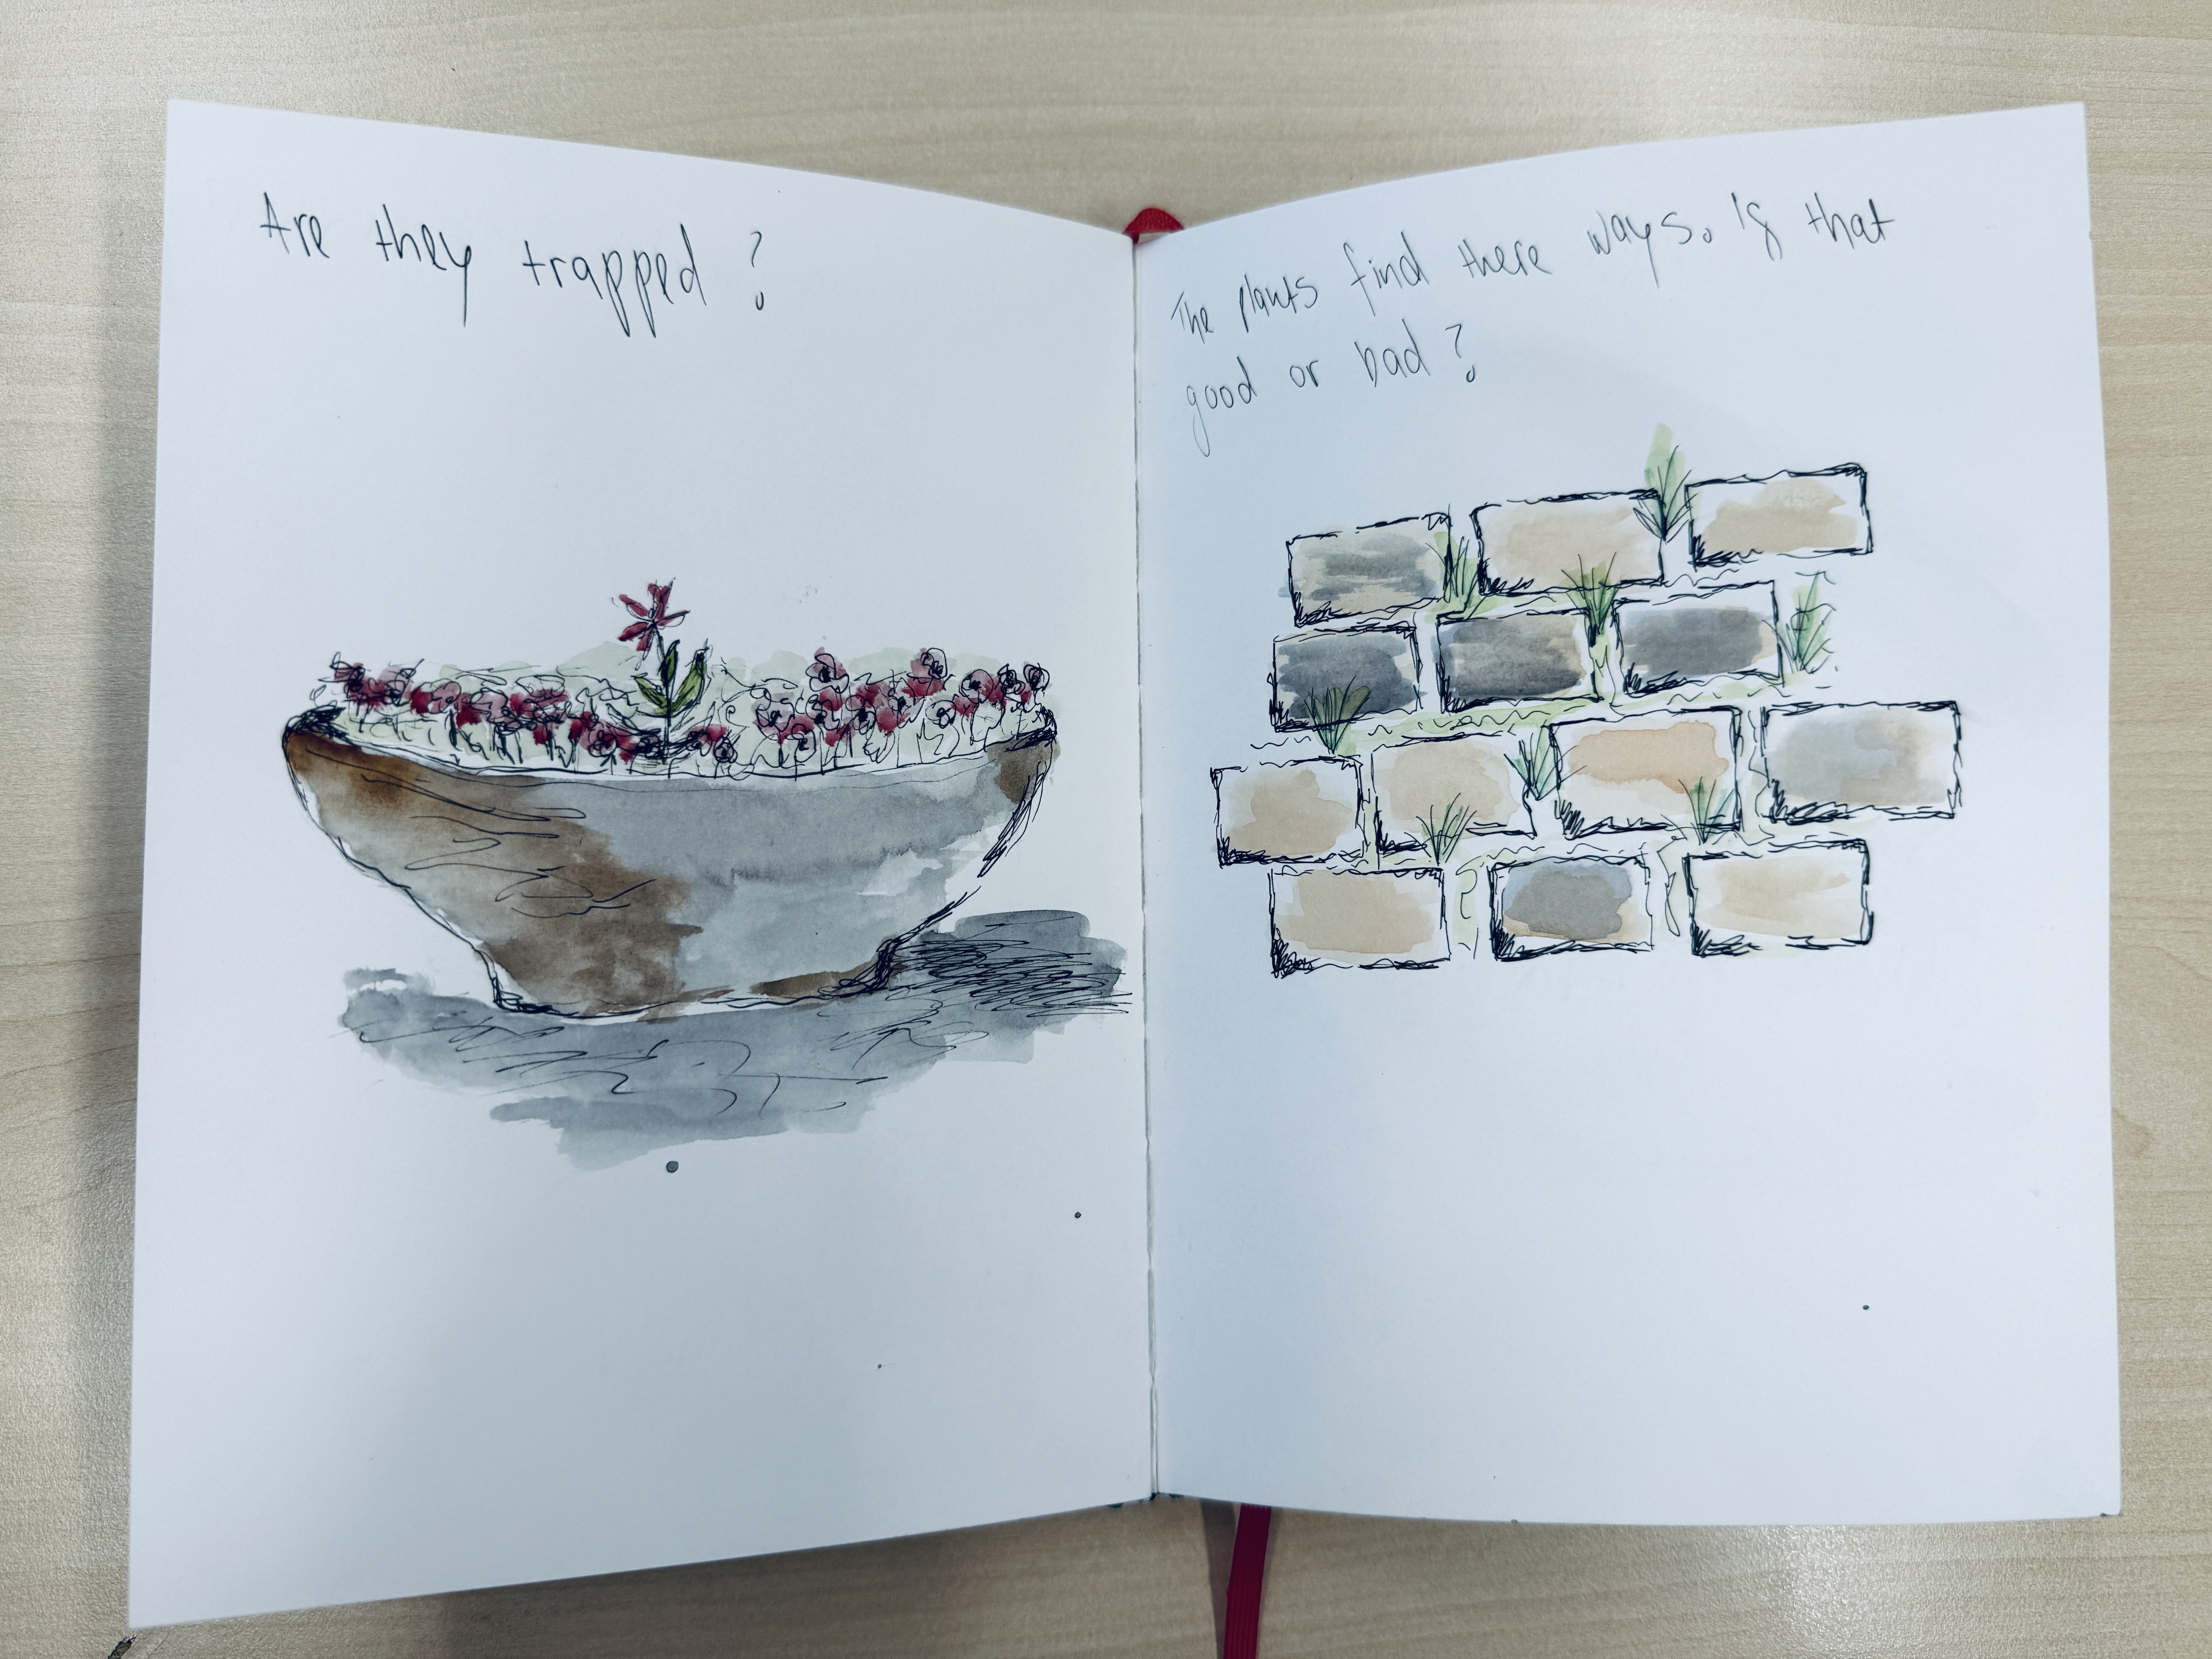 Are they trapped?
The plants find there ways. Is that
good or bad?